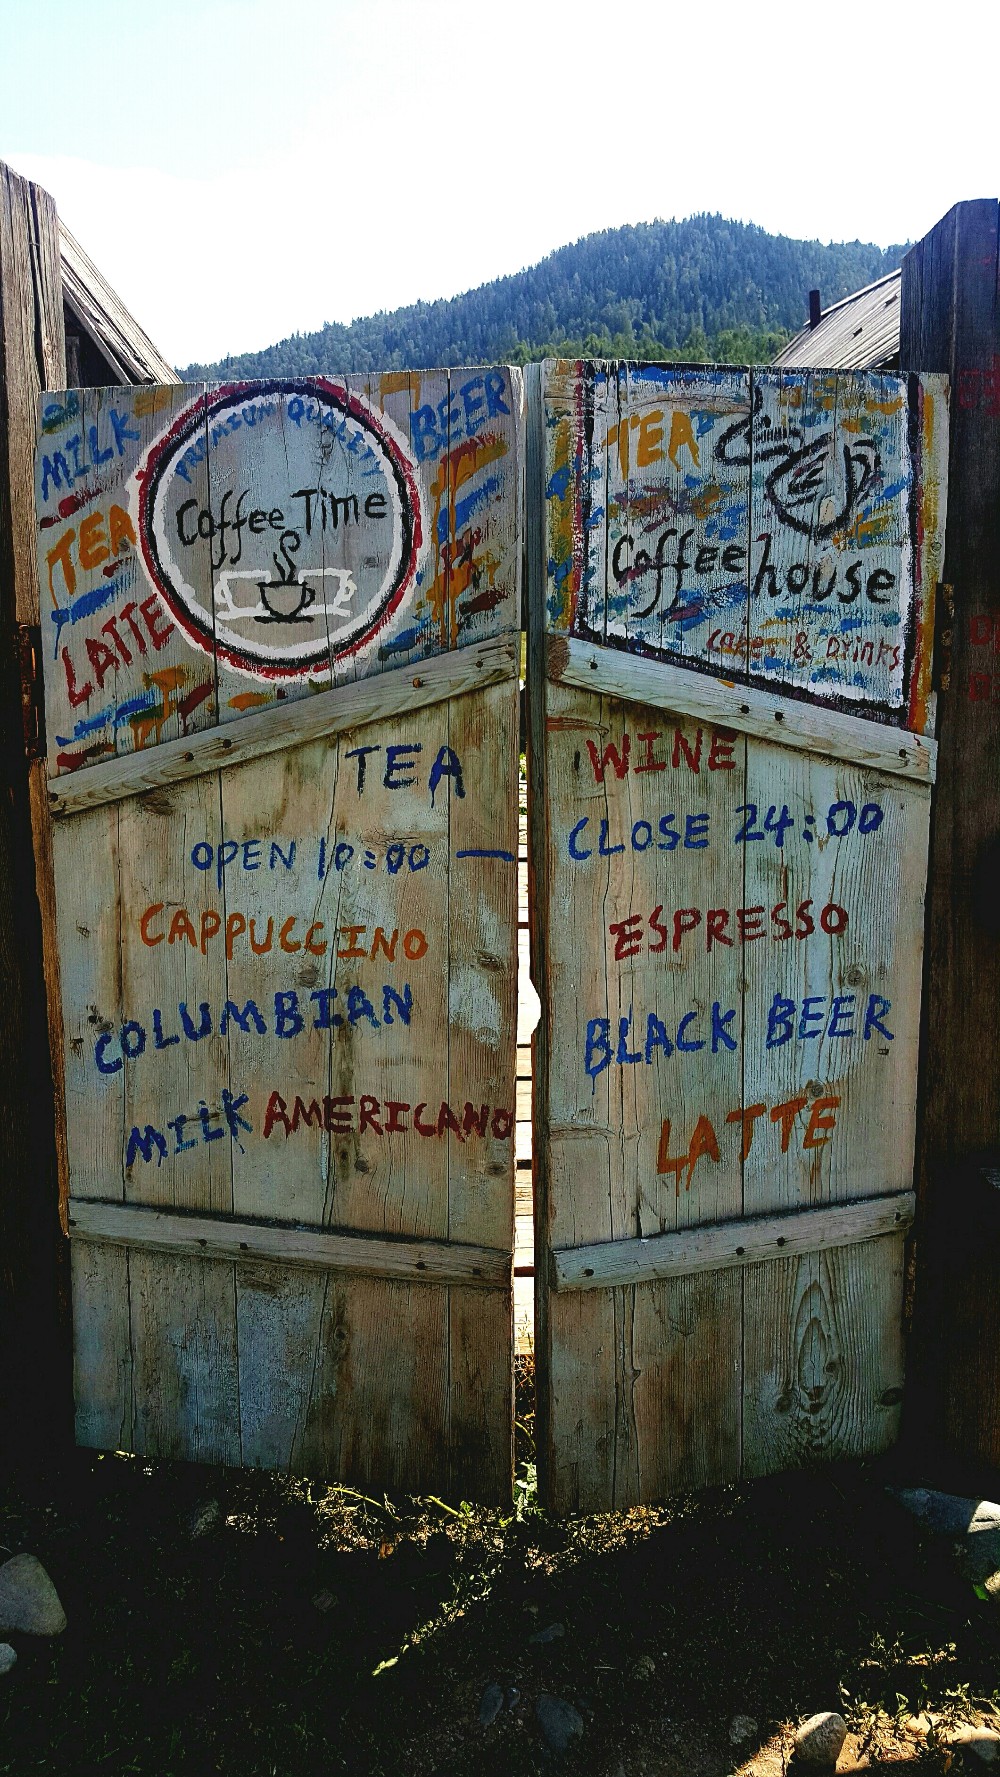 MILK
TEA
LATTE
PREMIUM QUALITY
Coffee Time
BEER
TEA
Coffee house
CAKES & DrinKs
TEA
OPEN 10:00 —
CAPPUCCINO
COLUMBIAN
MILK AMERICANO
WINE
CLOSE 24:00
ESPRESSO
BLACK BEER
LATTE